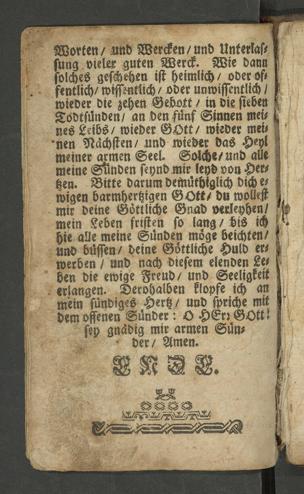 Worten / und Wercken / und Unterlas-
sung vieler guten Werck. Wie dann
solches geschehen ist heimlich / oder of-
fentlich / wissentlich / oder unwissentlich /
wieder die zehen Gebott / in die sieben
Todtsünden / an den fünf Sinnen mei-
nes Leibs / wieder GOtt / wieder mei-
nen Nächsten / und wieder das Heyl
meiner armen Seel. Solche / und alle
meine Sünden seynd mir leyd von Her-
tzen. Bitte darum demüthiglich dich e-
wigen barmhertzigen GOtt / du wollest
mir deine Göttliche Gnad verleyhen /
mein Leben fristen so lang / bis ich
hie alle meine Sünden möge beichten /
und büssen / deine Göttliche Huld er-
werben / und nach diesem elenden Le-
ben die ewige Freud / und Seeligkeit
erlangen. Derohalben klopfe ich an
mein sündiges Hertz / und spriche mit
dem offenen Sünder : O HErr GOtt!
sey gnädig mir armen Sün-
der / Amen.
ENDE.